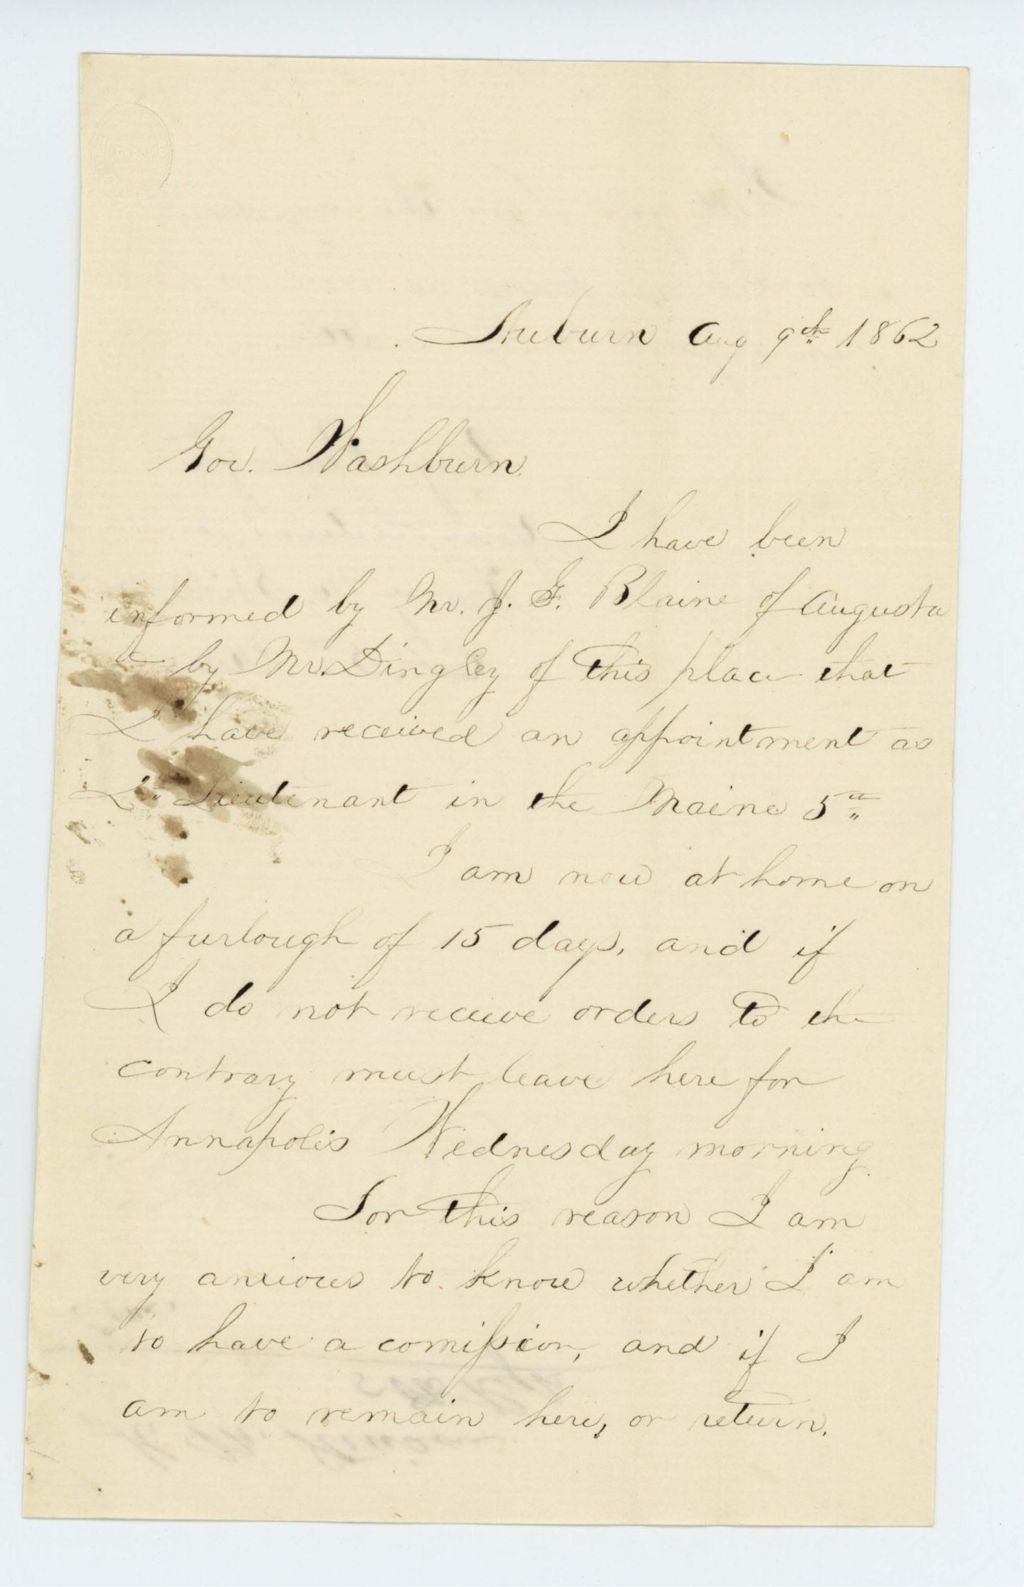 Auburn Aug 9th 1862
Gov. Washburn.
I have been
informed by Mr. J. G. Blaine of Augusta
& by Mr. Dingley of this place that
I have received an appointment as
Lieutenant in the Maine 5th
I am now at home on
a furlough of 15 days, and if
I do not receive orders to the
contrary must leave here for
Annapolis Wednesday morning.
For this reason I am
very anxious to know whether I am
to have a comission, and if I
am to remain here, or return.